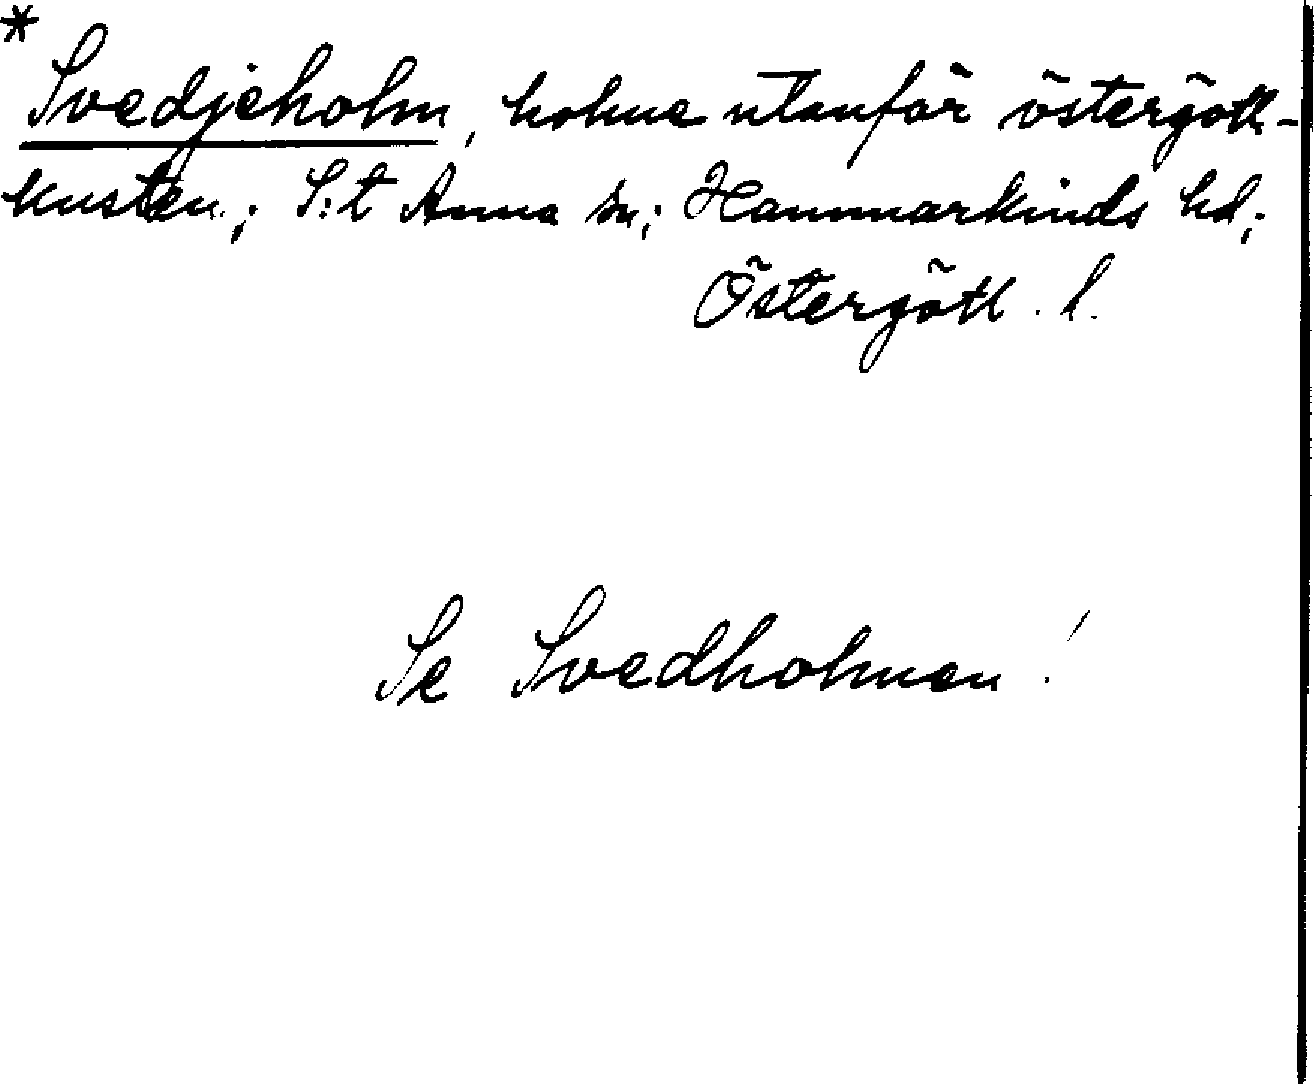 * Svedjeholm, holme utanför östergötl-
kusten; S:t Anna sn; Hammarkinds hd;
Östergötl. l.
Se Svedholmen!